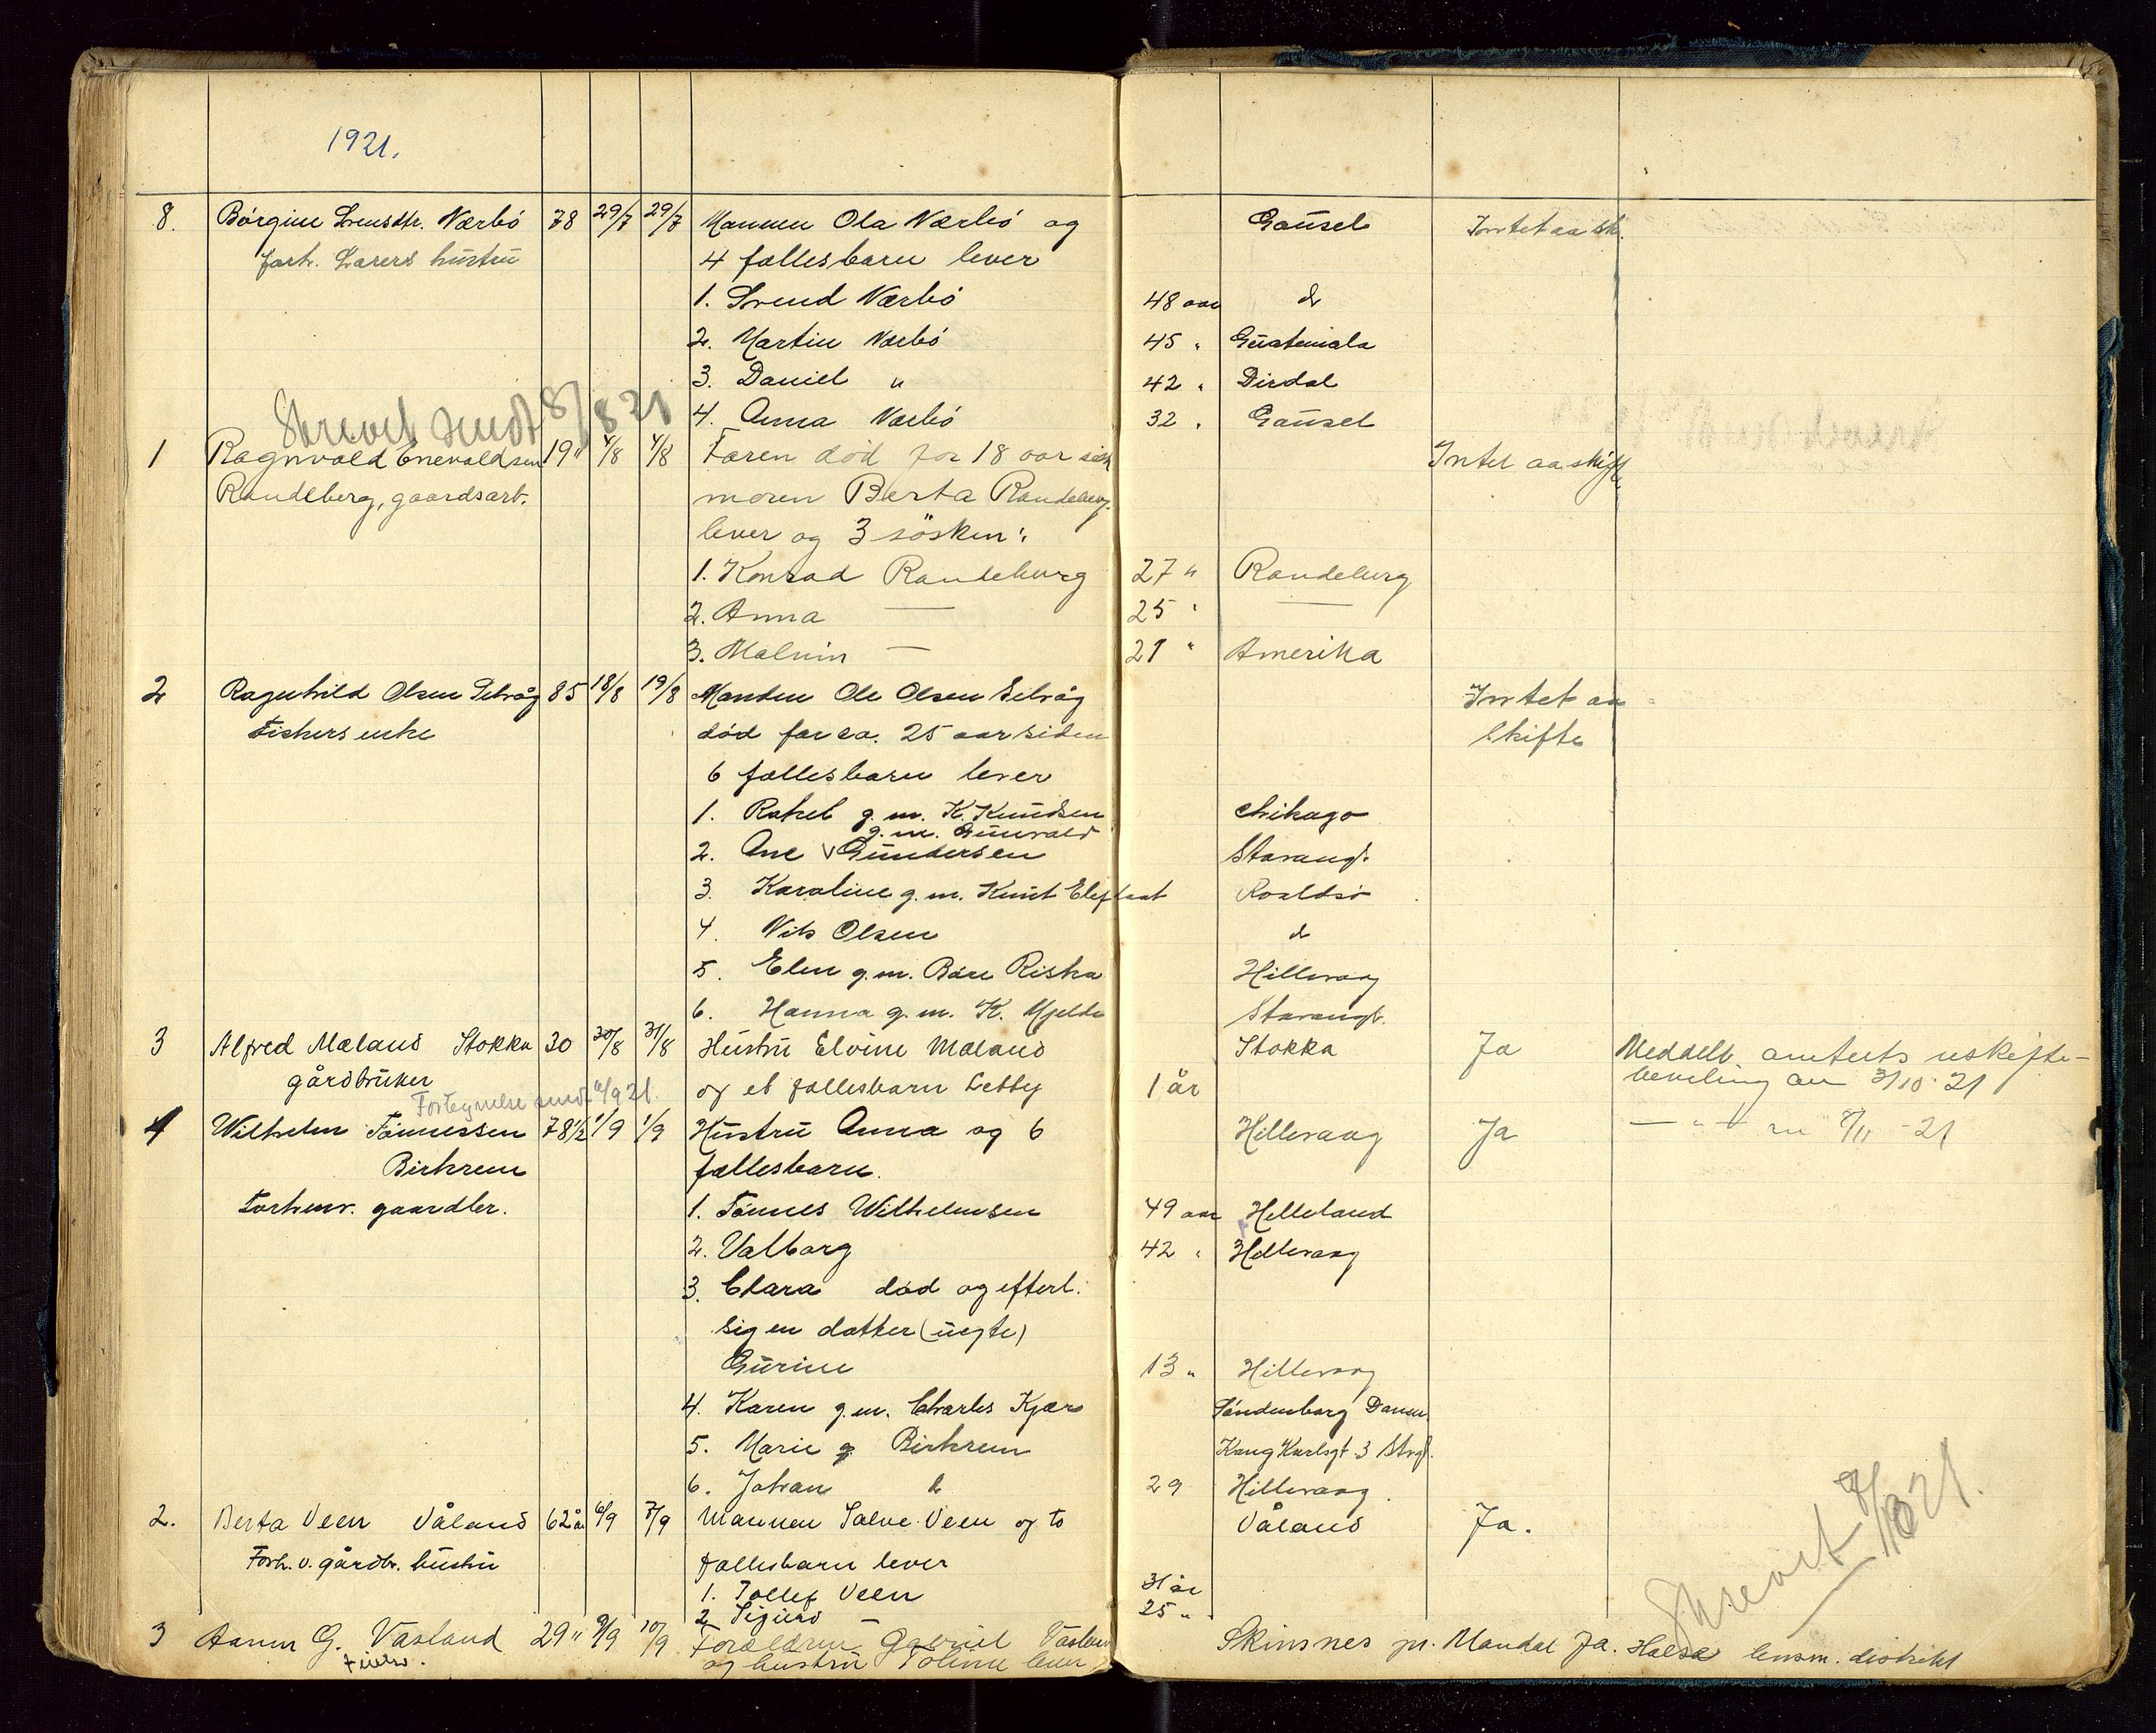 1921.
8. Börgine Svensdtr. Nærbö 78 29/7 29/7 Mannen Ola Nærbö og Gausel Intet aa sk.
forh. Lærers hustru 4 fællesbarn lever
1. Svend Nærbö 48 aar d
2. Martin Nærbö 45 " Guatemala
3. Daniel " 42 " Dirdal
4. Anna Nærbö 32 " Gausel
Skrevet sendt 8/8 21
1 Ragnvald Enevaldsen 19" 4/8 4/8 Faren död for 18 aar sid Intet aa skift
Randeberg, gaardsarb. moren Berta Randeberg
lever og 3 sösken:
1. Konrad Randeberg 27 " Randeberg
2. Anna — 25 " —
3. Malvin — 21 " Amerika
2 Ragnhild Olsen Selvåg 85 18/8 19/8 Manden Ole Olsen Selvåg Intet aa
Fiskers enke död for ca. 25 aar siden skifte
6 fællesbarn lever
1. Rakel g. m. K. Knudsen Chikago
g. m. Gunvald
2. Ane V Gundersen Stavang.
3. Karoline g. m. Knut Eleftaat Roaldsö
4. Nils Olsen d
5. Elen g. m. Båre Riska Hillevaag
6. Hanna g. m. K. Mjelde Stavang.
3 Alfred Mæland Stokka 30 30/8 31/8 Hustru Elvine Mæland Stokka Ja Meddelt amtets uskifte-
gårdbruker og et fællesbarn Letty 1 år bevilling av 3/10 21
Fortegnelse sendt 6/9 21.
4 Wilhelm Tönnessen 78 1/2 1/9 1/9 Hustru Anna og 6 Hillevaag Ja — " — av 8/11 - 21
Birkrem fællesbarn.
Forhenv. gaardbr. 1. Tönnes Wilhelmsen 49 aar Helleland
2. Valborg 42 " Hillevaag
3. Clara död og efterl.
sig en datter (uegte)
Gurine 13 " Hillevaag
4. Karen g. m. Charles Kjær Sönderborg Danm.
5. Marie g Birkrem Kong Karlsgt. 3 Stvgr.
6. Johan d 29 Hillevaag.
2. Berta Veen Våland 62 år 6/9 7/9 Mannen Salve Veen og to Våland Ja.
Forh. v. gårdbr. hustru fællesbarn lever
1. Tollef Veen 31 år
2. Sigurd — 25 "
Skrevet 8/10 21.
3 Aanen G. Våsland 29 " 9/9 10/9 Forældrene Gabriel Våsland Skinsnes pr. Mandal Ja. Halse lensm. distrikt
og hustru Toline lever